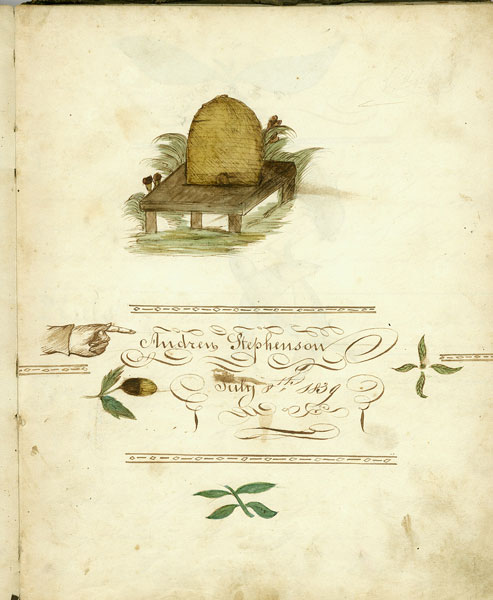 Andrew Stephenson
July 8th 1839